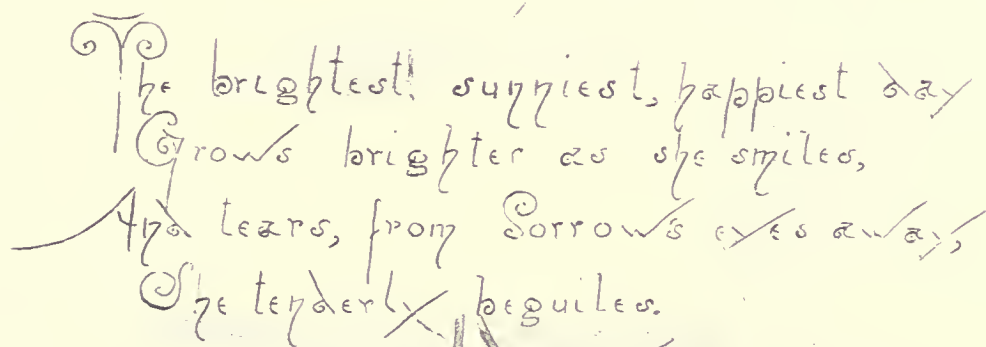 The brightest, sunniest, happiest day
Grows brighter as she smiles,
And tears, from Sorrows eyes away,
She tenderly beguiles.